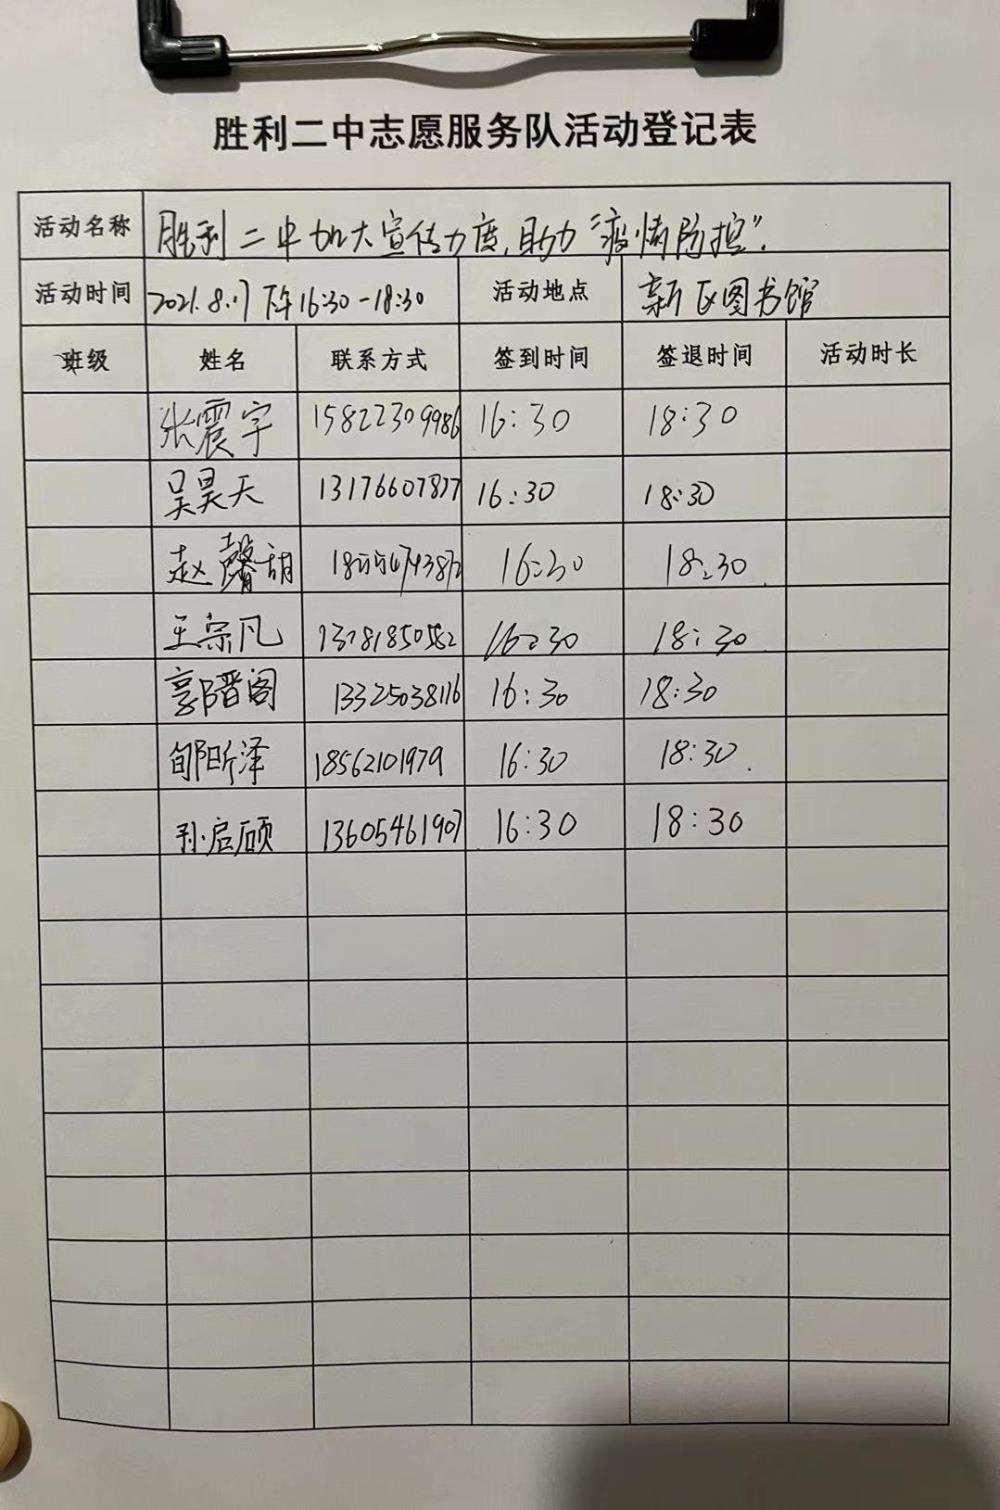 胜利二中志愿服务队活动登记表
活动名称 胜利二中加大宣传力度,助力“疫情防控”.
活动时间 2021.8.17 下午16:30-18:30 活动地点 新区图书馆
班级 姓名 联系方式 签到时间 签退时间 活动时长
张震宇 15822309986 16:30 18:30
吴昊天 13176607877 16:30 18:30
赵馨胡 16:30 18:30
王崇凡 16:30 18:30
郭晋阁 13325038116 16:30 18:30
郇昕泽 18562101979 16:30 18:30
孙启硕 13605461907 16:30 18:30